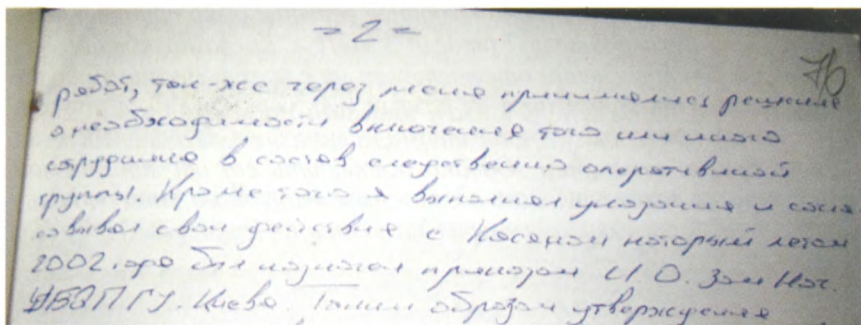 = 2 =
76
работ, так-же через меня принимались решение
о необходимости включения того или иного
сотрудника в состав следственно оперативной
группы. Кроме того я выполнял указания и согла
совывал свои действия с Касяном который летом
2002 года был назначен приказом И О. Зам Нач.
УБОП Г. Киева. Таким образом утверждения